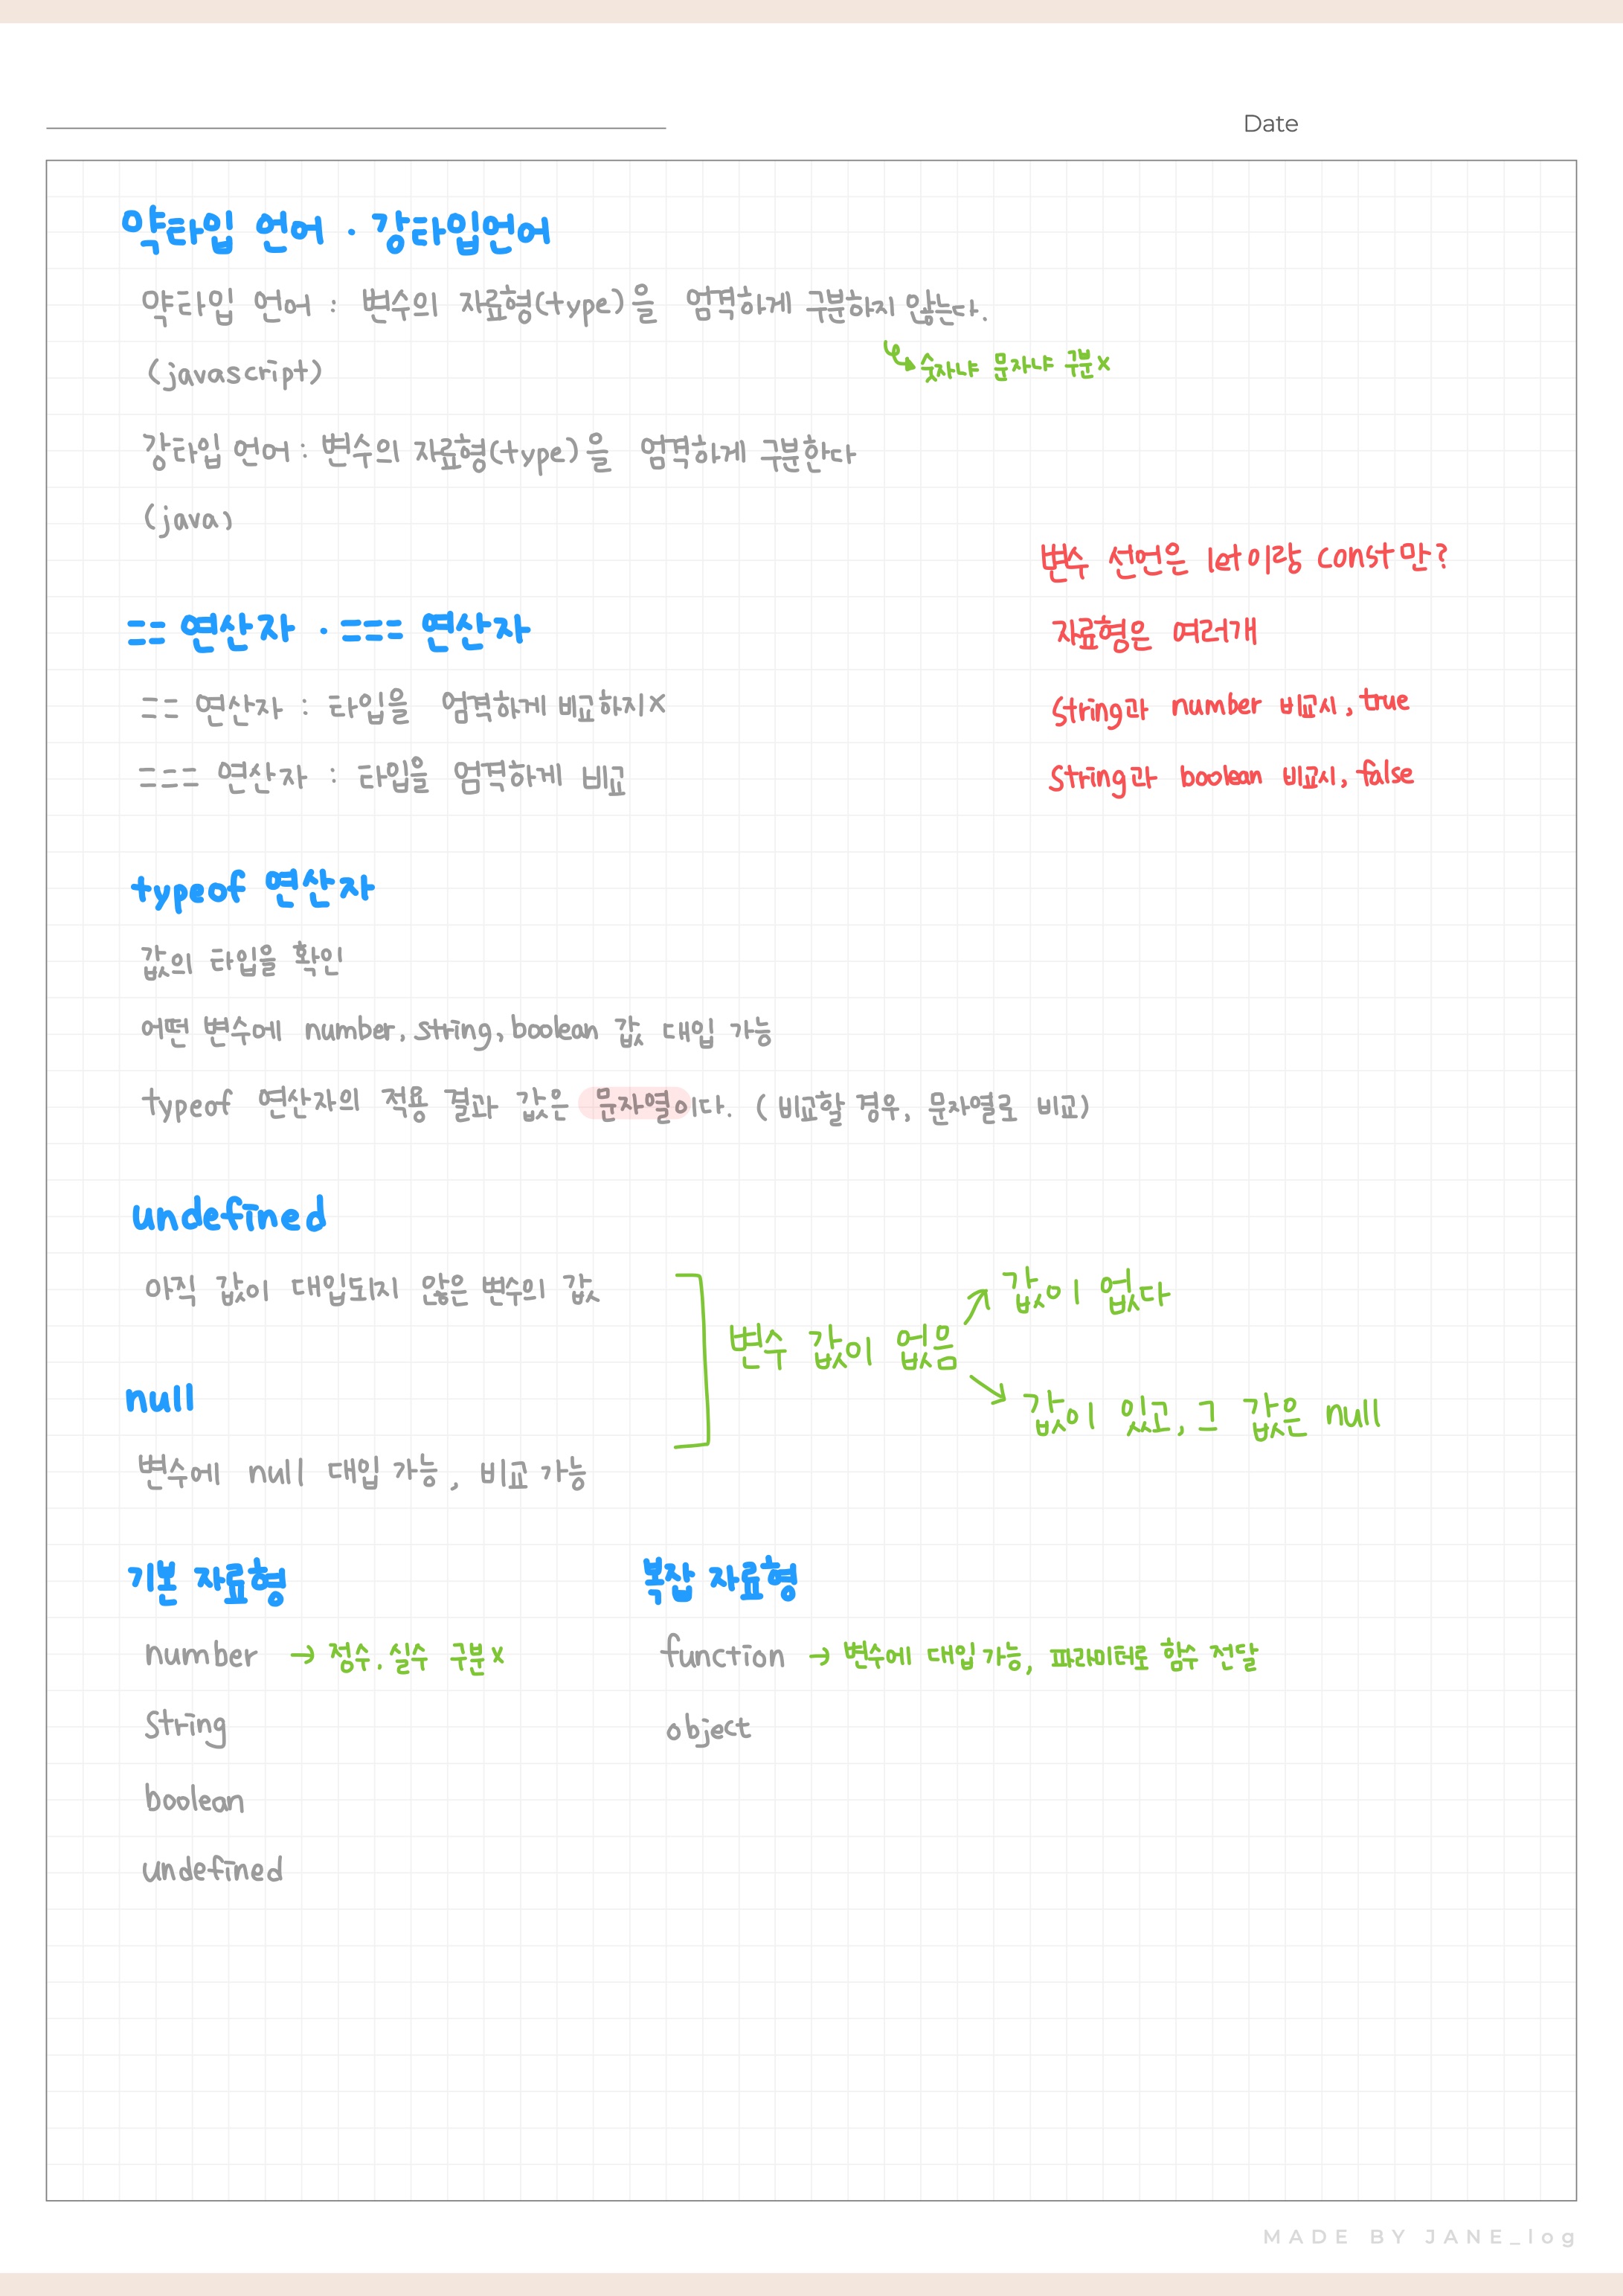 Date
약타입 언어 · 강타입언어
약타입 언어 : 변수의 자료형(type)을 엄격하게 구분하지 않는다.
(javascript)
숫자냐 문자냐 구분x
강타입 언어 : 변수의 자료형(type)을 엄격하게 구분한다
(java)
변수 선언은 let이랑 const만?
자료형은 여러개
String과 number 비교시, true
String과 boolean 비교시, false
== 연산자 · === 연산자
== 연산자 : 타입을 엄격하게 비교하지x
=== 연산자 : 타입을 엄격하게 비교
typeof 연산자
값의 타입을 확인
어떤 변수에 number, string, boolean 값 대입 가능
typeof 연산자의 적용 결과 값은 문자열이다. (비교할 경우, 문자열로 비교)
undefined
아직 값이 대입되지 않은 변수의 값
null
변수에 null 대입 가능, 비교 가능
변수 값이 없음
값이 없다
값이 있고, 그 값은 null
기본 자료형
number → 정수. 실수 구분x
String
boolean
undefined
복잡 자료형
function → 변수에 대입 가능, 파라미터로 함수 전달
object
MADE BY JANE_log